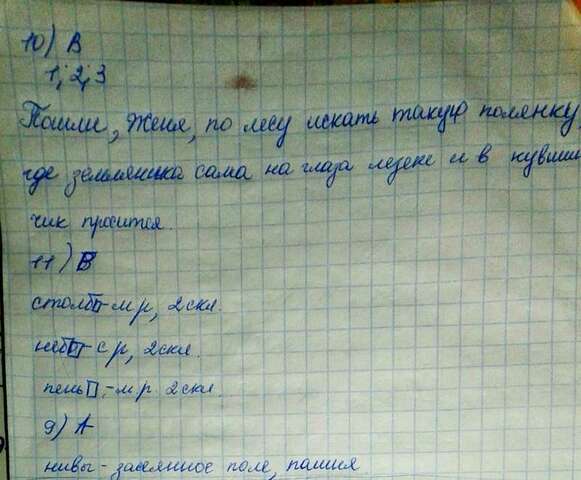 10) В
1; 2; 3
Пошли, Женя, по лесу искать такую полянку
где земляника сама на глаза лезене и в кувшин
чик просится.
11) В
столб□ - м р, 2скл.
неб□ - с р, 2скл.
пень□, - м р. 2 скл.
9) А
нивы - засеянное поле, пашня